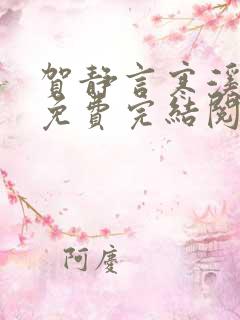 賀靜言寒淫
免費完結閱
阿慶